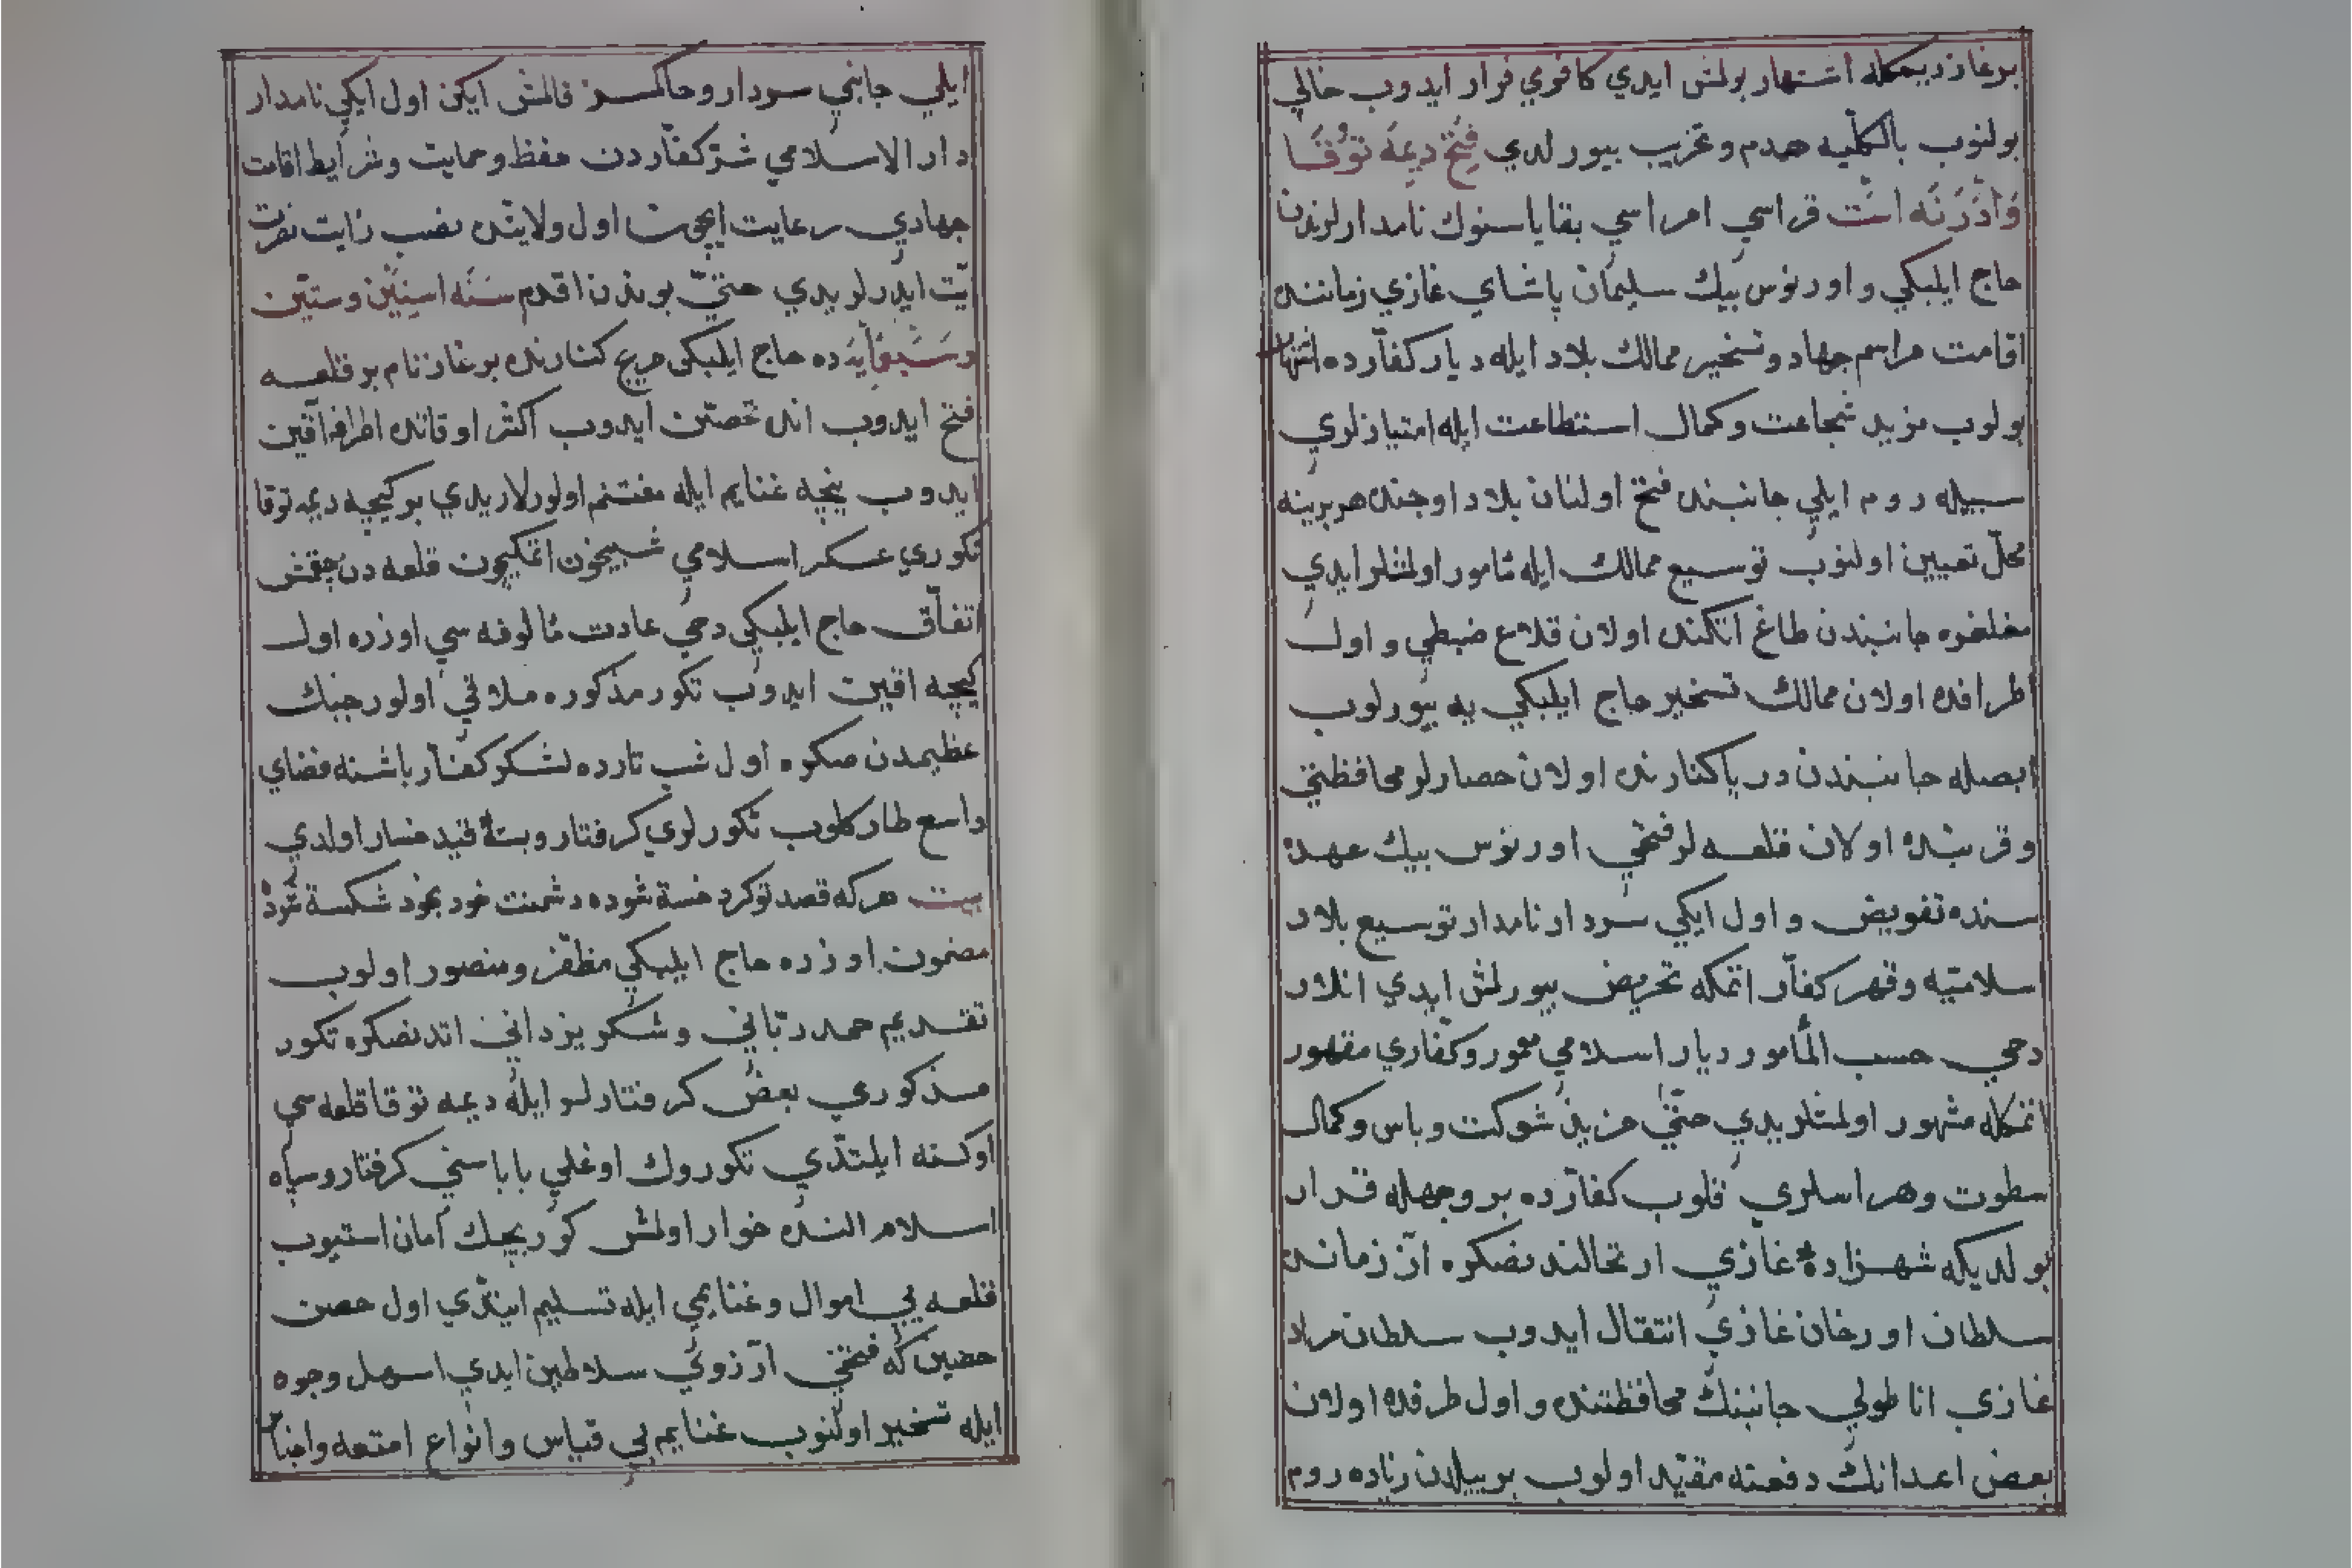 برغاز ديمكله اشتهار بولمش ايدي كافري فرار ايدوب خالي
بولنوب بالكلّيه هدم و تخريب بيورلدي فتح ديمه توقا
وَادرَنَه انّت قراسي امراسي بقاياسنوك نامدارلرندن
حاج ايلبكي و اورنوس بيك سليمان پاشاي غازي زماننده
اقامت مراسم جهاد و تسخير ممالك بلاد ايله ديار كفّارده اشتهار
بولوب مزيد شجاعت و كمال استطاعت ايله امتيازلري
سبيله روم ايلي جانبنده فتح اولنان بلاد اوجنده هر برينه
محلّ تعيين اولنوب توسيع ممالك ايله مأمور اولمشلر ايدي
مغلغره جانبندن طاغ اتكنده اولان قلاع ضبطي و اول
اطرافده اولان ممالك تسخير حاج ايلبكي يه بيورلوب
ابصله جانبندن دريا كنارنده اولان حصارلر محافظتي
و قربنده اولان قلعه لر فتحي اورنوس بيك عهده
سنده تفويض و اول ايكي سردار نامدار توسيع بلاد
سلاميّه و قهر كفّار اتمكه تحريض بيورلمش ايدي انلار
دخي حسب المأمور ديار اسلامي معمور و كفّاري مقهور
اتمكله مشهور اولمشلريدي حتّي مزيد شوكت و باس و كمال
سطوت و هراسلري قلوب كفّارده بر وجهله قرار
بولديكه شهزاده غازي ارتحالندنصكره از زمانده
سلطان اورخان غازي انتقال ايدوب سلطان مراد
غازي اناطولي جانبنك محافظتنده و اول طرفده اولان
بعض اعدانك دفعنه مقيّد اولوب بر ييلدن زياده روم
ايلي جانبي سردار و حاكمسز قالمش ايكن اول ايكي نامدار
دار الاسلامي شرّ كفّاردن حفظ و حمايت و شرايط اقامت
جهادي رعايت ايچون اول ولايتده نصب رايت نصرت
يّت ايدرلريدي حتّي بوندن اقدم سَنَه اسنين و ستّين
و سَبعمايَه ده حاج ايلبكي مريج كنارنده برغاز نام بر قلعه
فتح ايدوب انده تحصّن ايدوب اكثر اوقاتده اطرافه اقين
ايدوب نيچه غنايم ايله مغتنم اولورلاريدي بر كيچه ديمه توقا
تكوري عسكر اسلامي شبيخون اتمكيچون قلعه دن چقمش
اتفاق حاج ايلبكي دخي عادت مألوفه سي اوزره اول
كيچه اقين ايدوب تكور مذكوره ملاقي اولور جنك
عظيمدن صكره اول شب تارده لشكر كفّار باشنه فضاي
واسع طار كلوب تكورلري كرفتار و بستۀ قيد خسار اولدي
بيت هر كه قصد تو كرد خسته شود ه دشمنت خود بخود شكسته شود
مضمون اوزره حاج ايلبكي مظفّر و منصور اولوب
تقديم حمد ربّاني و شكر يزداني اتدنصكره تكور
مذكوري بعض كرفتارلر ايله ديمه توقا قلعه سي
اوكنه ايلتدّي تكوروك اوغلي باباسني كرفتار سپاه
اسلام النده خوار اولمش كوريجك امان استيوب
قلعه يي اموال و غنايمي ايله تسليم ايتدّي اول حصن
حصين كه فتحي آرزوي سلاطين ايدي اسهل وجوه
ايله تسخير اولنوب غنايم بي قياس و انواع امتعه و اجناس